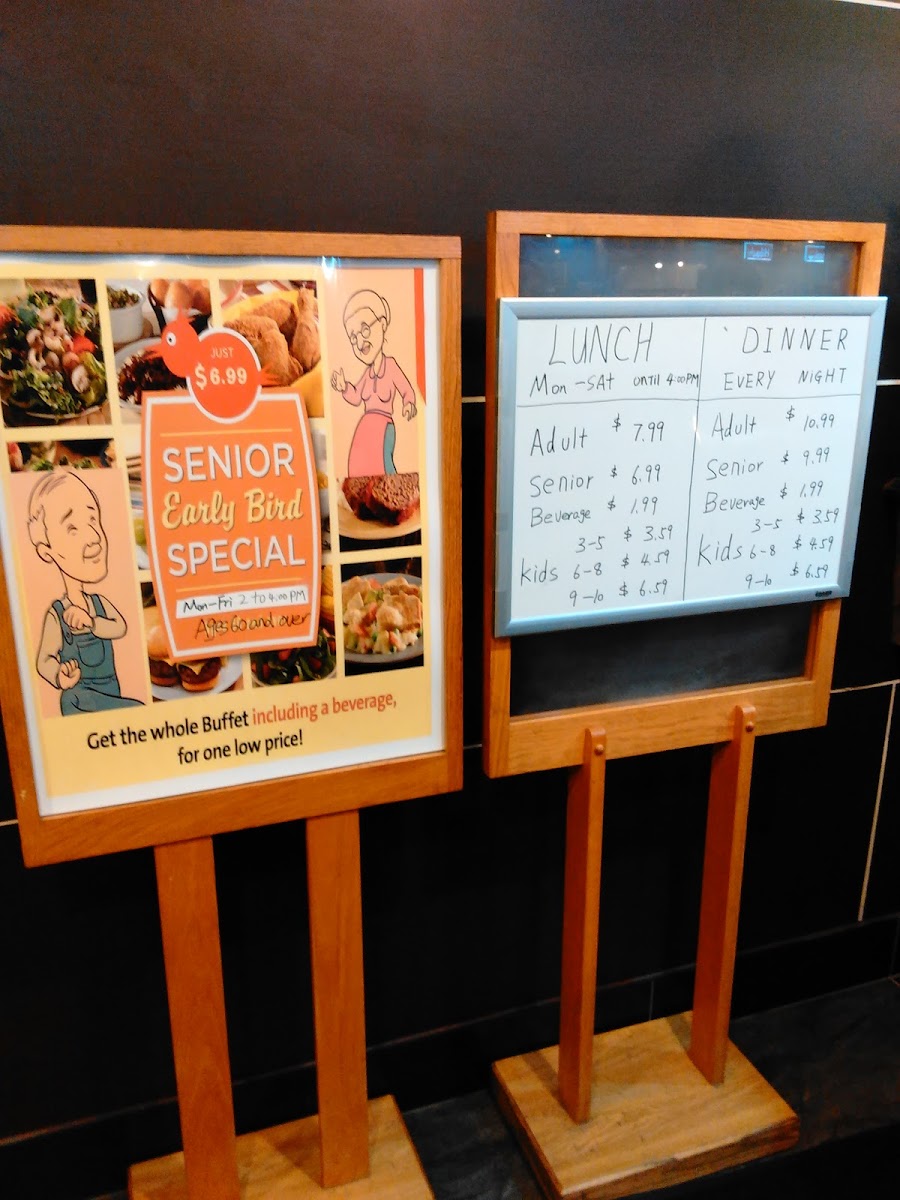 JUST
$6.99
SENIOR
Early Bird
SPECIAL
Mon-Fri 2 to 4:00 PM
Ages 60 and over
Get the whole Buffet including a beverage,
for one low price!
LUNCH
Mon - SAt until 4:00 PM
Adult $ 7.99
Senior $ 6.99
Beverage $ 1.99
3-5 $ 3.59
kids 6-8 $ 4.59
9-10 $ 6.59
DINNER
EVERY NiGHT
Adult $ 10.99
Senior $ 9.99
Beverage $ 1.99
3-5 $ 3.59
kids 6-8 $ 4.59
9-10 $ 6.59